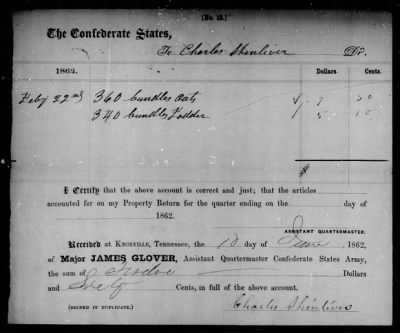 [No. 12.]
The Confederate States,
To Charles Shinliver Dr.
1862. Dollars Cents.
Feby 22nd 360 bundles Oats
340 bundles Fodder
I Certify that the above account is correct and just; that the articles
accounted for on my Property Return for the quarter ending on the day of
1862.
ASSISTANT QUARTERMASTER.
Received at Knoxville, Tennessee, the 10 day of June 1862,
of Major JAMES GLOVER, Assistant Quartermaster Confederate States Army,
the sum of Dollars
and Cents, in full of the above account.
(SIGNED IN DUPLICATE.) Charles Shinliver